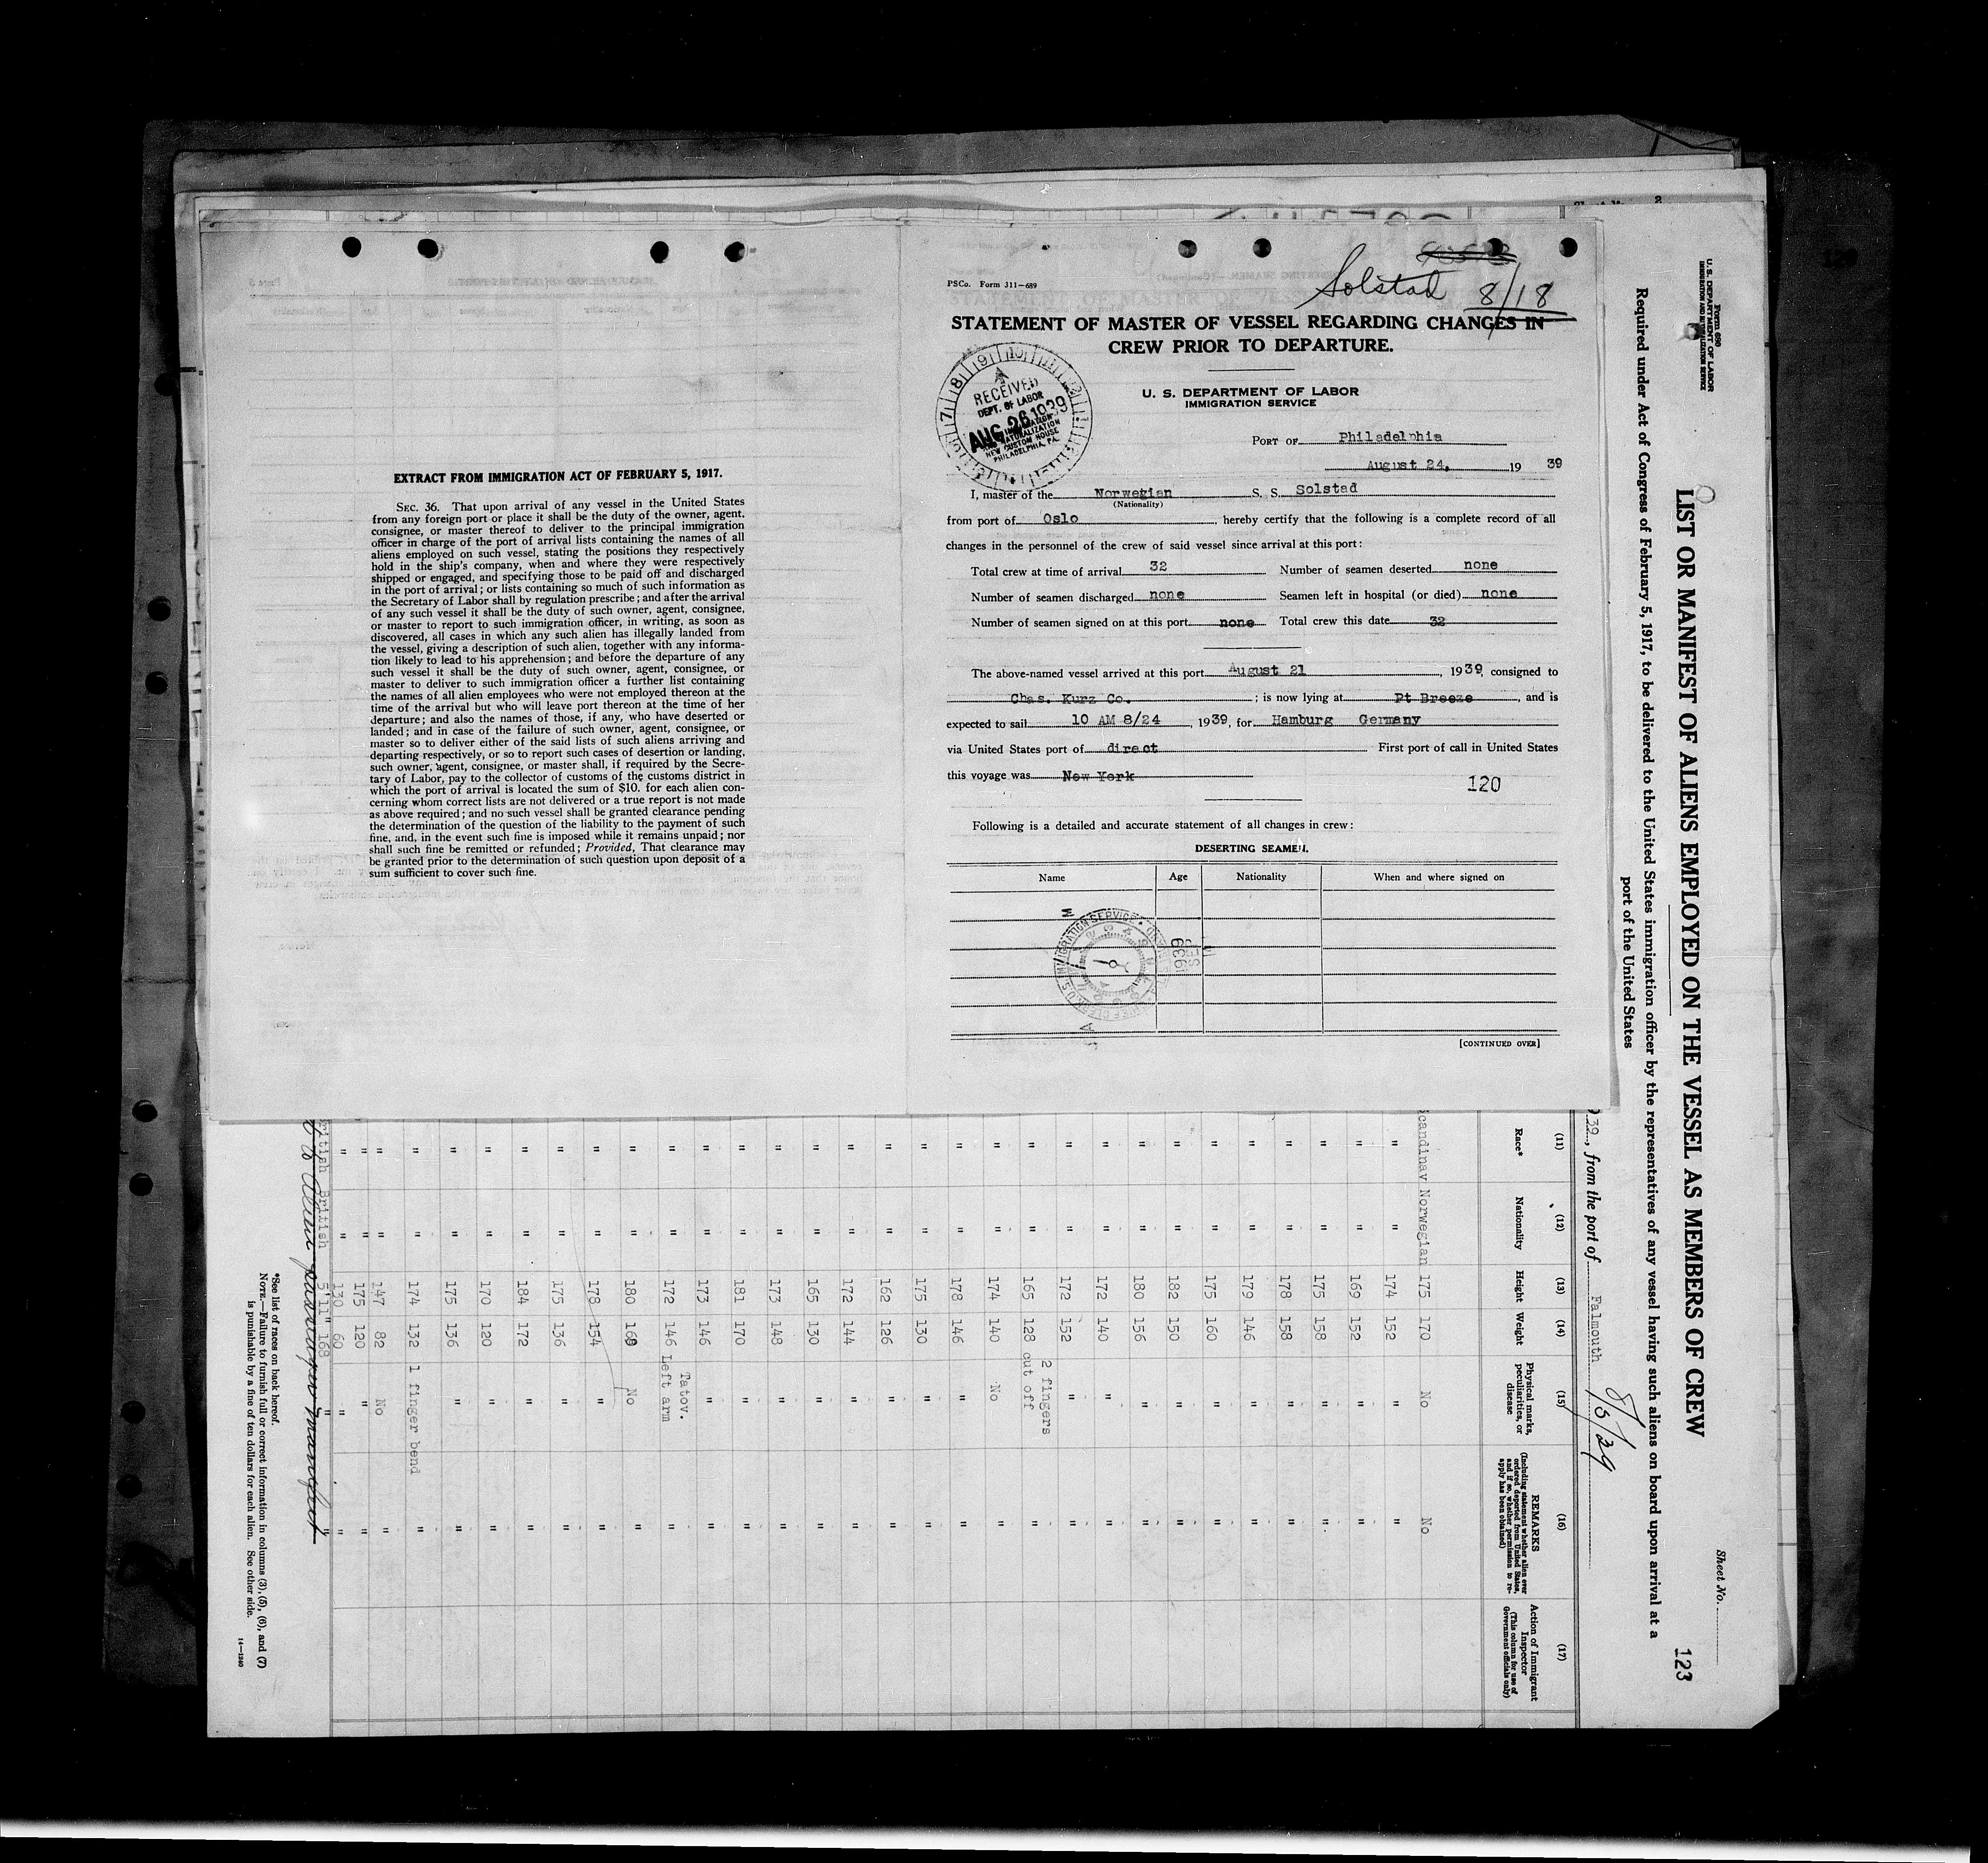 EXTRACT FROM IMMIGRATION ACT OF FEBRUARY 5, 1917.
SEC. 36. That upon arrival of any vessel in the United States
from any foreign port or place it shall be the duty of the owner, agent,
consignee, or master thereof to deliver to the principal immigration
officer in charge of the port of arrival lists containing the names of all
aliens employed on such vessel, stating the positions they respectively
hold in the ship's company, when and where they were respectively
shipped or engaged, and specifying those to be paid off and discharged
in the port of arrival; or lists containing so much of such information as
the Secretary of Labor shall by regulation prescribe; and after the arrival
of any such vessel it shall be the duty of such owner, agent, consignee,
or master to report to such immigration officer, in writing, as soon as
discovered, all cases in which any such alien has illegally landed from
the vessel, giving a description of such alien, together with any informa-
tion likely to lead to his apprehension; and before the departure of any
such vessel it shall be the duty of such owner, agent, consignee, or
master to deliver to such immigration officer a further list containing
the names of all alien employees who were not employed thereon at the
time of the arrival but who will leave port thereon at the time of her
departure; and also the names of those, if any, who have deserted or
landed; and in case of the failure of such owner, agent, consignee, or
master so to deliver either of the said lists of such aliens arriving and
departing respectively, or so to report such cases of desertion or landing,
such owner, agent, consignee, or master shall, if required by the Secre-
tary of Labor, pay to the collector of customs of the customs district in
which the port of arrival is located the sum of $10. for each alien con-
cerning whom correct lists are not delivered or a true report is not made
as above required; and no such vessel shall be granted clearance pending
the determination of the question of the liability to the payment of such
fine, and, in the event such fine is imposed while it remains unpaid; nor
shall such fine be remitted or refunded; Provided, That clearance may
be granted prior to the determination of such question upon deposit of a
sum sufficient to cover such fine.
PSCo. Form 311—689
Solstad 8/18
STATEMENT OF MASTER OF VESSEL REGARDING CHANGES IN
CREW PRIOR TO DEPARTURE.
RECEIVED
DEPT. OF LABOR
AUG 26 1939
IMMIGRATION
NATURALIZATION
NEW CUSTOM HOUSE
PHILADELPHIA, PA.
U. S. DEPARTMENT OF LABOR
IMMIGRATION SERVICE
PORT OF Philadelphia
August 24, 19 39
I, master of the Norwegian S. S. Solstad
(Nationality)
from port of Oslo, hereby certify that the following is a complete record of all
changes in the personnel of the crew of said vessel since arrival at this port:
Total crew at time of arrival 32 Number of seamen deserted none
Number of seamen discharged none Seamen left in hospital (or died) none
Number of seamen signed on at this port none Total crew this date 32
The above-named vessel arrived at this port August 21, 1939, consigned to
Chas. Kurz Co.; is now lying at Pt Breeze, and is
expected to sail 10 AM 8/24, 1939, for Hamburg Germany
via United States port of direct First port of call in United States
this voyage was New York
120
Following is a detailed and accurate statement of all changes in crew:
DESERTING SEAMEN.
Name Age Nationality When and where signed on
[CONTINUED OVER]
Form 689
U. S. DEPARTMENT OF LABOR
IMMIGRATION AND NATURALIZATION SERVICE
Sheet No.
123
LIST OR MANIFEST OF ALIENS EMPLOYED ON THE VESSEL AS MEMBERS OF CREW
Required under Act of Congress of February 5, 1917, to be delivered to the United States immigration officer by the representatives of any vessel having such aliens on board upon arrival at a
port of the United States
39, from the port of Falmouth 8/5/39
(11) (12) (13) (14) (15) (16) (17)
Race* Nationality Height Weight Physical marks, peculiarities, or disease REMARKS (Including statement whether alien ever ordered deported from United States, and if so, whether permission to re-apply has been obtained) Action of Immigrant Inspector (This column for use of Government officials only)
candinav Norwegian 175 170 No No
" " 174 152 " "
" " 169 152 " "
" " 175 158 " "
" " 178 158 " "
" " 179 146 " "
" " 175 160 " "
" " 182 150 " "
" " 180 156 " "
" " 172 140 " "
" " 172 152 " "
" " 165 128 2 fingers cut off "
" " 174 140 No "
" " 178 146 " "
" " 175 130 " "
" " 162 126 " "
" " 172 144 " "
" " 165 130 " "
" " 173 148 " "
" " 181 170 " "
" " 173 146 " "
" " 172 146 Tatov. Left arm "
" " 180 160 No "
" " 178 154 " "
" " 175 136 " "
" " 184 172 " "
" " 170 120 " "
" " 175 136 " "
" " 174 132 1 finger bend "
" " 147 82 No "
" " 175 120 " "
" " 130 60 " "
ritish British 5'11" 168 " "
passenger manifest
*See list of races on back hereof.
NOTE.—Failure to furnish full or correct information in columns (3), (5), (6), and (7)
is punishable by a fine of ten dollars for each alien. See other side.
14—1240